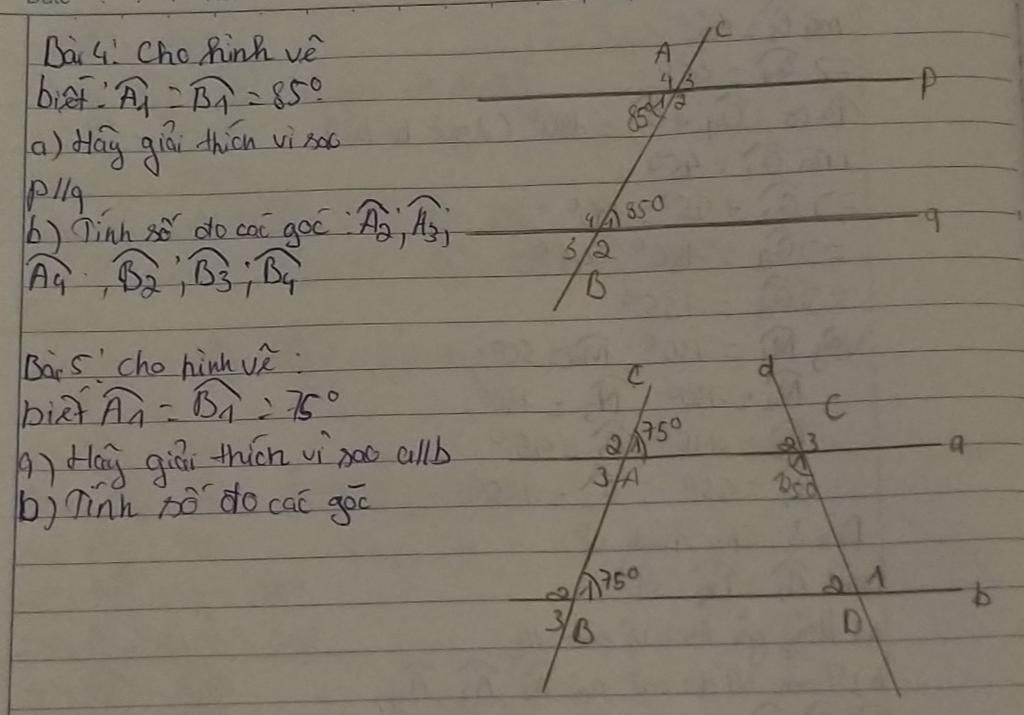 Bài 4: Cho hình vẽ
biết: A1 = B1 = 85°
a) Hãy giải thích vì sao
p//q
b) Tính số đo các góc: A2; A3;
A4; B2; B3; B4
C
A
4 3
85° 1 2
p
4 1 85°
q
3 2
B
Bài 5: Cho hình vẽ:
biết A1 = B1 = 75°
a) Hãy giải thích vì sao a//b
b) Tính số đo các góc
c
d
C
2 1 75°
2 3
a
3 A
1
2 1 75°
2 1
b
3 B
D